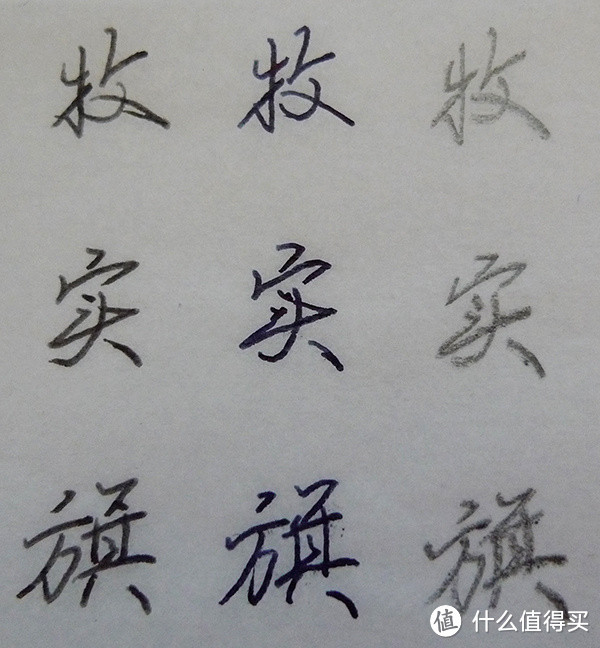 牧 牧 牧
实 实 实
旗 旗 旗
值 什么值得买